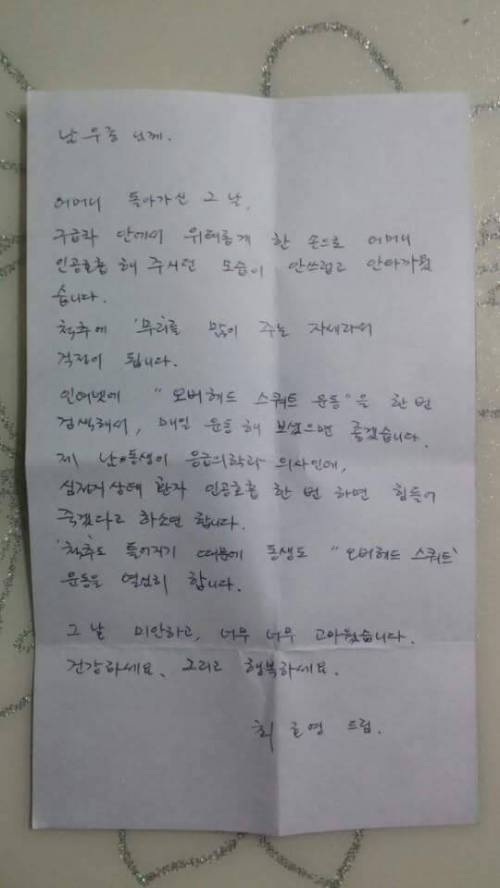 남우종 님께.
어머니 돌아가신 그 날,
구급차 안에서 위태롭게 한 손으로 어머니
인공호흡 해 주시던 모습이 안쓰럽고 안타까웠
습니다.
척추에 '무리'를 많이 주는 자세라서
걱정이 됩니다.
인터넷에 "오버헤드 스쿼트 운동"을 한 번
검색해서, 매일 운동 해 보셨으면 좋겠습니다.
제 남동생이 응급의학과 의사인데,
심정지상태 환자 인공호흡 한 번 하면 힘들어
죽겠다고 하소연 합니다.
'척추'도 틀어지기 때문에 동생도 "오버헤드 스쿼트"
운동을 열심히 합니다.
그 날 미안하고, 너무 너무 고마웠습니다.
건강하세요. 그리고 행복하세요.
최 영 드림.